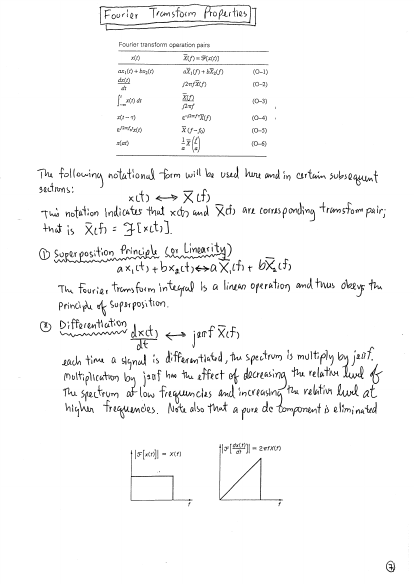 Fourier Transform Properties
Fourier transform operation pairs
x(t) X̄(f) = ℱ[x(t)]
ax₁(t) + bx₂(t) aX̄₁(f) + bX̄₂(f) (O-1)
dx(t)/dt j2πfX̄(f) (O-2)
∫₋∞ᵗ x(t) dt X̄(f)/j2πf (O-3)
x(t − τ) e^(-j2πfτ)X̄(f) (O-4)
e^(j2πf₀t)x(t) X̄(f − f₀) (O-5)
x(at) 1/a X̄(f/a) (O-6)
The following notational form will be used here and in certain subsequent
sections:
x(t) ⟷ X̄(f)
This notation indicates that x(t) and X̄(f) are corresponding transform pair;
that is X̄(f) = ℱ[x(t)].
① Superposition Principle (or Linearity)
ax₁(t) + bx₂(t) ⟷ aX̄₁(f) + bX̄₂(f)
The Fourier transform integral is a linear operation and thus obeys the
Principle of Superposition.
② Differentiation dx(t)/dt ⟷ j2πf X̄(f)
each time a signal is differentiated, the spectrum is multiply by j2πf.
Multiplication by j2πf has the effect of decreasing the relative level of
The spectrum at low frequencies and increasing the relative level at
higher frequencies. Note also that a pure dc component is eliminated
|ℱ[x(t)]| = X(f)
|ℱ[dx(t)/dt]| = 2πfX(f)
f
f
7